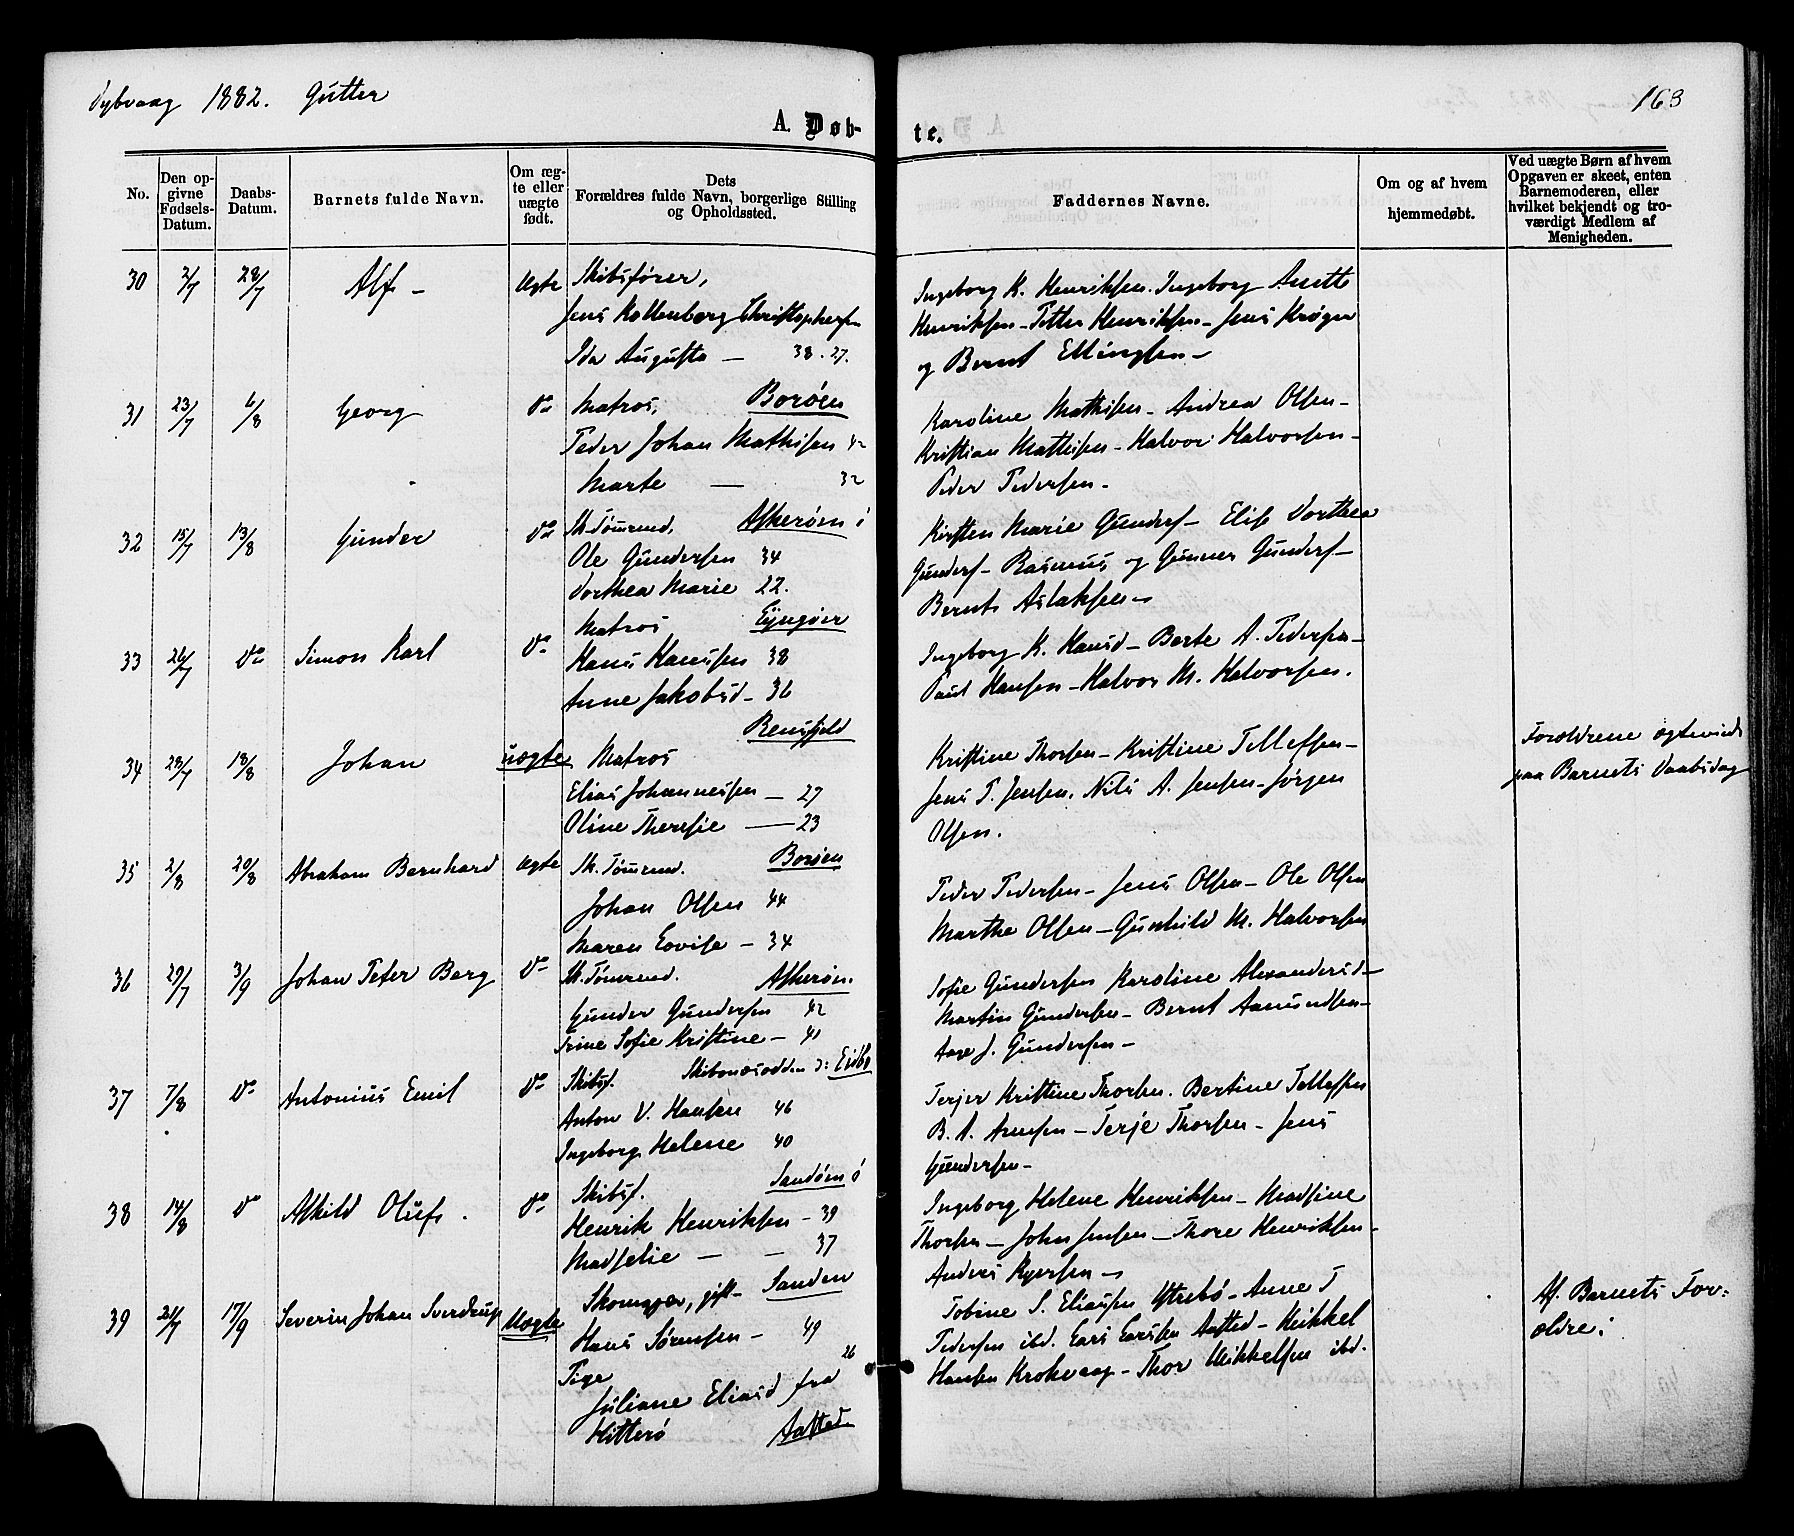 Dybvaag 1882. Gutter
163
A. Døb-
te.
No.
Den op-
givne
Fødsels-
Datum.
Daabs-
Datum.
Barnets fulde Navn.
Om æg-
te eller
uægte
født.
Dets
Forældres fulde Navn, borgerlige Stilling
og Opholdssted.
Faddernes Navne.
Om og af hvem
hjemmedøbt.
Ved uægte Børn af hvem
Opgaven er skeet, enten
Barnemoderen, eller
hvilket bekjendt og tro-
værdigt Medlem af
Menigheden.
30 2/7 28/7 Alf – Ægte Skibsfører,
Jens Kallenborg Christophersen
Ida Augusta — 38. 27.
Ingeborg K. Henriksen. Ingeborg Anette
Henriksen – Petter Henriksen – Jens Krøger
og Bernt Ellingsen –
31 23/7 6/8 Georg Do Matros, Borøen
Peder Johan Mathisen 42
Marte — 32
Karoline Mathisen – Andrea Olsen –
Kristian Mathisen – Halvor Halvorsen –
Peder Pedersen –
32 15/7 13/8 Gunder Do Sk. Tømmd. Askerøen
Ole Gundersen 34
Dorthea Marie 22.
Kirsten Marie Gunders – Elise Dorthea
Gunders – Rasmus og Gunner Gunders –
Bernt Aslaksen –
33 26/7 Do Simon Karl Do Matros
Hans Hansen 38
Anne Jakobsd – 36
Ingeborg K. Hansd – Berte A. Pedersen –
Paul Hansen – Halvor M. Halvorsen.
34 28/7 18/8 Johan uægte Matros
Elias Johannessen — 27
Oline Theresie — 23
Kristine Thorsen – Kristine Tellefsen –
Jens P. Jensen, Nils A. Jensen – Jørgen
Olsen.
Forældrene
paa Barnets Daabsdag
35 2/8 20/8 Abraham Bernhard Ægte Sk. Tømmd. Borøen
Johan Olsen 44
Maren Lovise – 34
Peder Pedersen – Jens Olsen – Ole Olsen
Marthe Olsen – Gunhild M. Halvorsen
36 29/7 3/9 Johan Peter Berg Do Sk. Tømmd. Askerøen.
Gunder Gundersen 42
Trine Sofie Kristine – 41
Sofie Gundersen Karoline Alexandersd –
Martin Gundersen – Bernt Aamundsen –
Aage J. Gundersen –
37 7/8 Do Antonius Emil Do Skibsf. Eidbo
Anton V. Hansen 46
Ingeborg Helene 40
Kristine Thorsen. Bertine Tellefsen
B. A. Arnesen – Terje Thorsen – Jens
Gundersen –
38 14/8 Do Askild Oluf. Do Skibsf. Sandøen
Henrik Henriksen – 39
Madselie — 37
Ingeborg Helene Henriksen – Madsine
Thorsen – John Jensen – Thore Henriksen –
Anders
39 21/7 17/9 Severin Johan Sverdrup Uægte Skomager, gift – Sanden
Hans Sørensen – 49
Pige 26
Juliane Eliasd fra
Hitterø
Tobine S. Eliassen Ytrebø – Anne T
Pedersen ibd. Lars Larsen – Mikkel
Hansen Krokvaag – Thor Mikkelsen ibd.
Af Barnets For-
ældre.